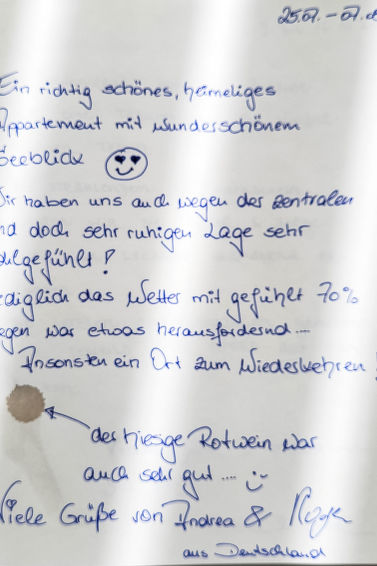 25.07. – 07.0
Ein richtig schönes, heimeliges
Appartement mit wunderschönem
Seeblick
Wir haben uns auch wegen der zentralen
und doch sehr ruhigen Lage sehr
wohlgefühlt!
ediglich das Wetter mit gefühlt 70%
egen war etwas herausfordernd....
Ansonsten ein Ort zum Wiederkehren!
der hiesige Rotwein war
auch sehr gut ....
Viele Grüße von Andrea &
aus Deutschland